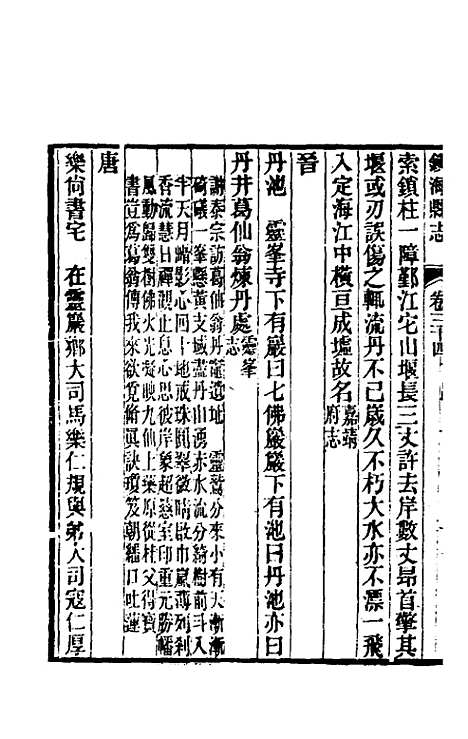 鎮海縣志 卷三十四
索鎖柱一障鄞江宅山堰長三丈許去岸數丈昂首擎其
堰或刃誤傷之輒流丹不已歲久不朽大水亦不漂一飛
入定海江中橫亘成墟故名嘉靖府志
晉
丹池 靈峯寺下有巖曰七佛巖巖下有池曰丹池亦曰
丹井葛仙翁煉丹處靈峯志
謝泰宗訪葛仙翁丹竈遺址 靈鷲分來小有天漸漸
碕礒一峯懸黃支域蓋丹山湧赤水流分綺樹前斗入
半天月踏影心回十地戒珠圓翠微晴啟巾嵐薄刹
香流慧日禪觀止息心思彼岸象超慈室印重元勝幡
風動歸雙樹佛火光凝映九仙上藥原從桂父得寶
書豈爲葛翁傳我來欲覓脩眞訣瓊笈朝繙口吐蓮
唐
樂尙書宅 在靈巖鄕大司馬樂仁規與弟大司寇仁厚